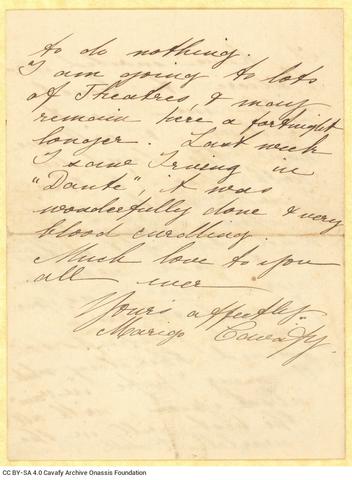 to do nothing.
I am going to lots
of Theatres, & may
remain here a fortnight
longer. Last week
I saw Irving in
"Dante", it was
wonderfully done & very
blood curdling.
Much love to you
all
Yours affectly.
Marigo Cavafy.
CC BY-SA 4.0 Cavafy Archive Onassis Foundation